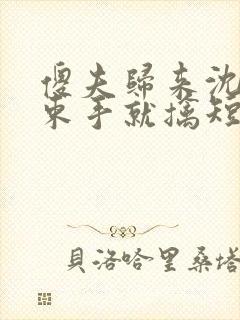 傻夫归来沈
束手就擒短
貝洛哈里桑塔